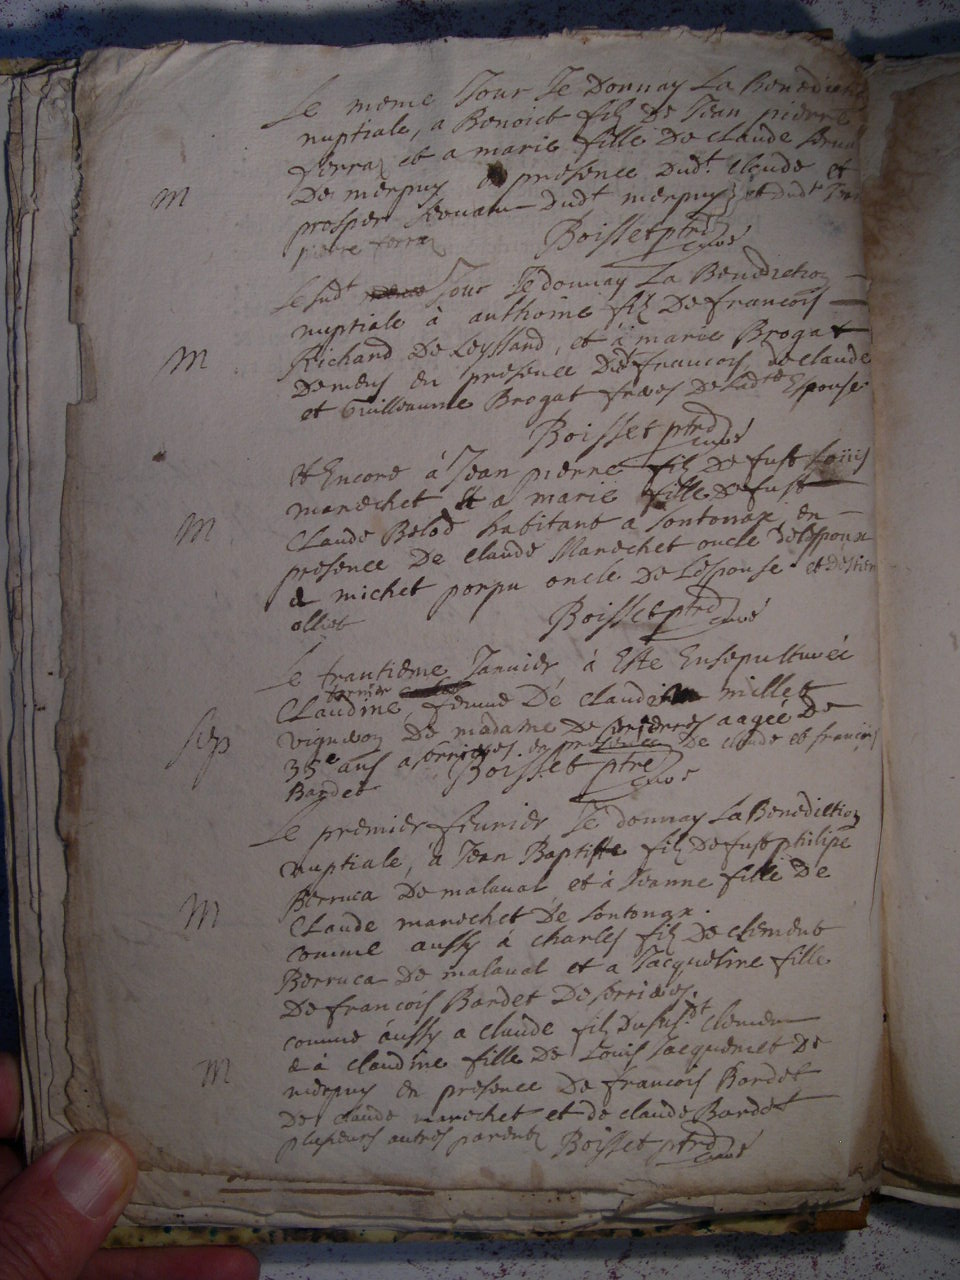 Le meme Jour Je Donnay La Benedict
nuptiale, a Benoict filz De Jean pierre
ferraz et a marie fille De Claude
M
De merpuy presence Dudt. Claude et
prosper Dudt merpuy et dudt
pierre ferraz Boisset ptre
curé
Lesudt Jour Je donnay La Benediction
nuptiale à anthoine filz De francois
M
Richard De Leyssard, et à marie Brogat
De en presence Dudt francois de claude
et Guilleaume Brogat freres De Ladtte Espouse
Boisset ptre
curé
Et Encore à Jean pierre filz De fust Louis
marechet Et a marie fille De fust
M
Claude Belod habitant a Sontonax en
presence De Claude Marechet oncle de lespoux
& michet porpu oncle De Lespouse et
olliet Boisset ptre curé
Le trantieme Janvier à Esté Ensepulturée
dernier
Claudine femme De Claude millet
Sep
vigneron De madame De Serrieres aagée de
35e ans a Serrieres en presence De claude et francois
Bardet Boisset ptre
curé
Le premier feurier Je donnay La Benediction
nuptiale, à Jean Baptiste filz De fust philipe
Berruca De malaval et à Jeanne fille De
M
Claude marechet De Sontonax.
comme aussy à charles filz De clement
Berruca De malaval et a Jacqueline fille
De francois Bardet De Serrieres.
comme aussy a claude filz dususdt clement
M
& à claudine fille De Louis Jacquemet De
merpuy en presence De francois Bardet
De claude marechet et de claude Bardet
plusieurs autres parentz Boisset ptre
curé